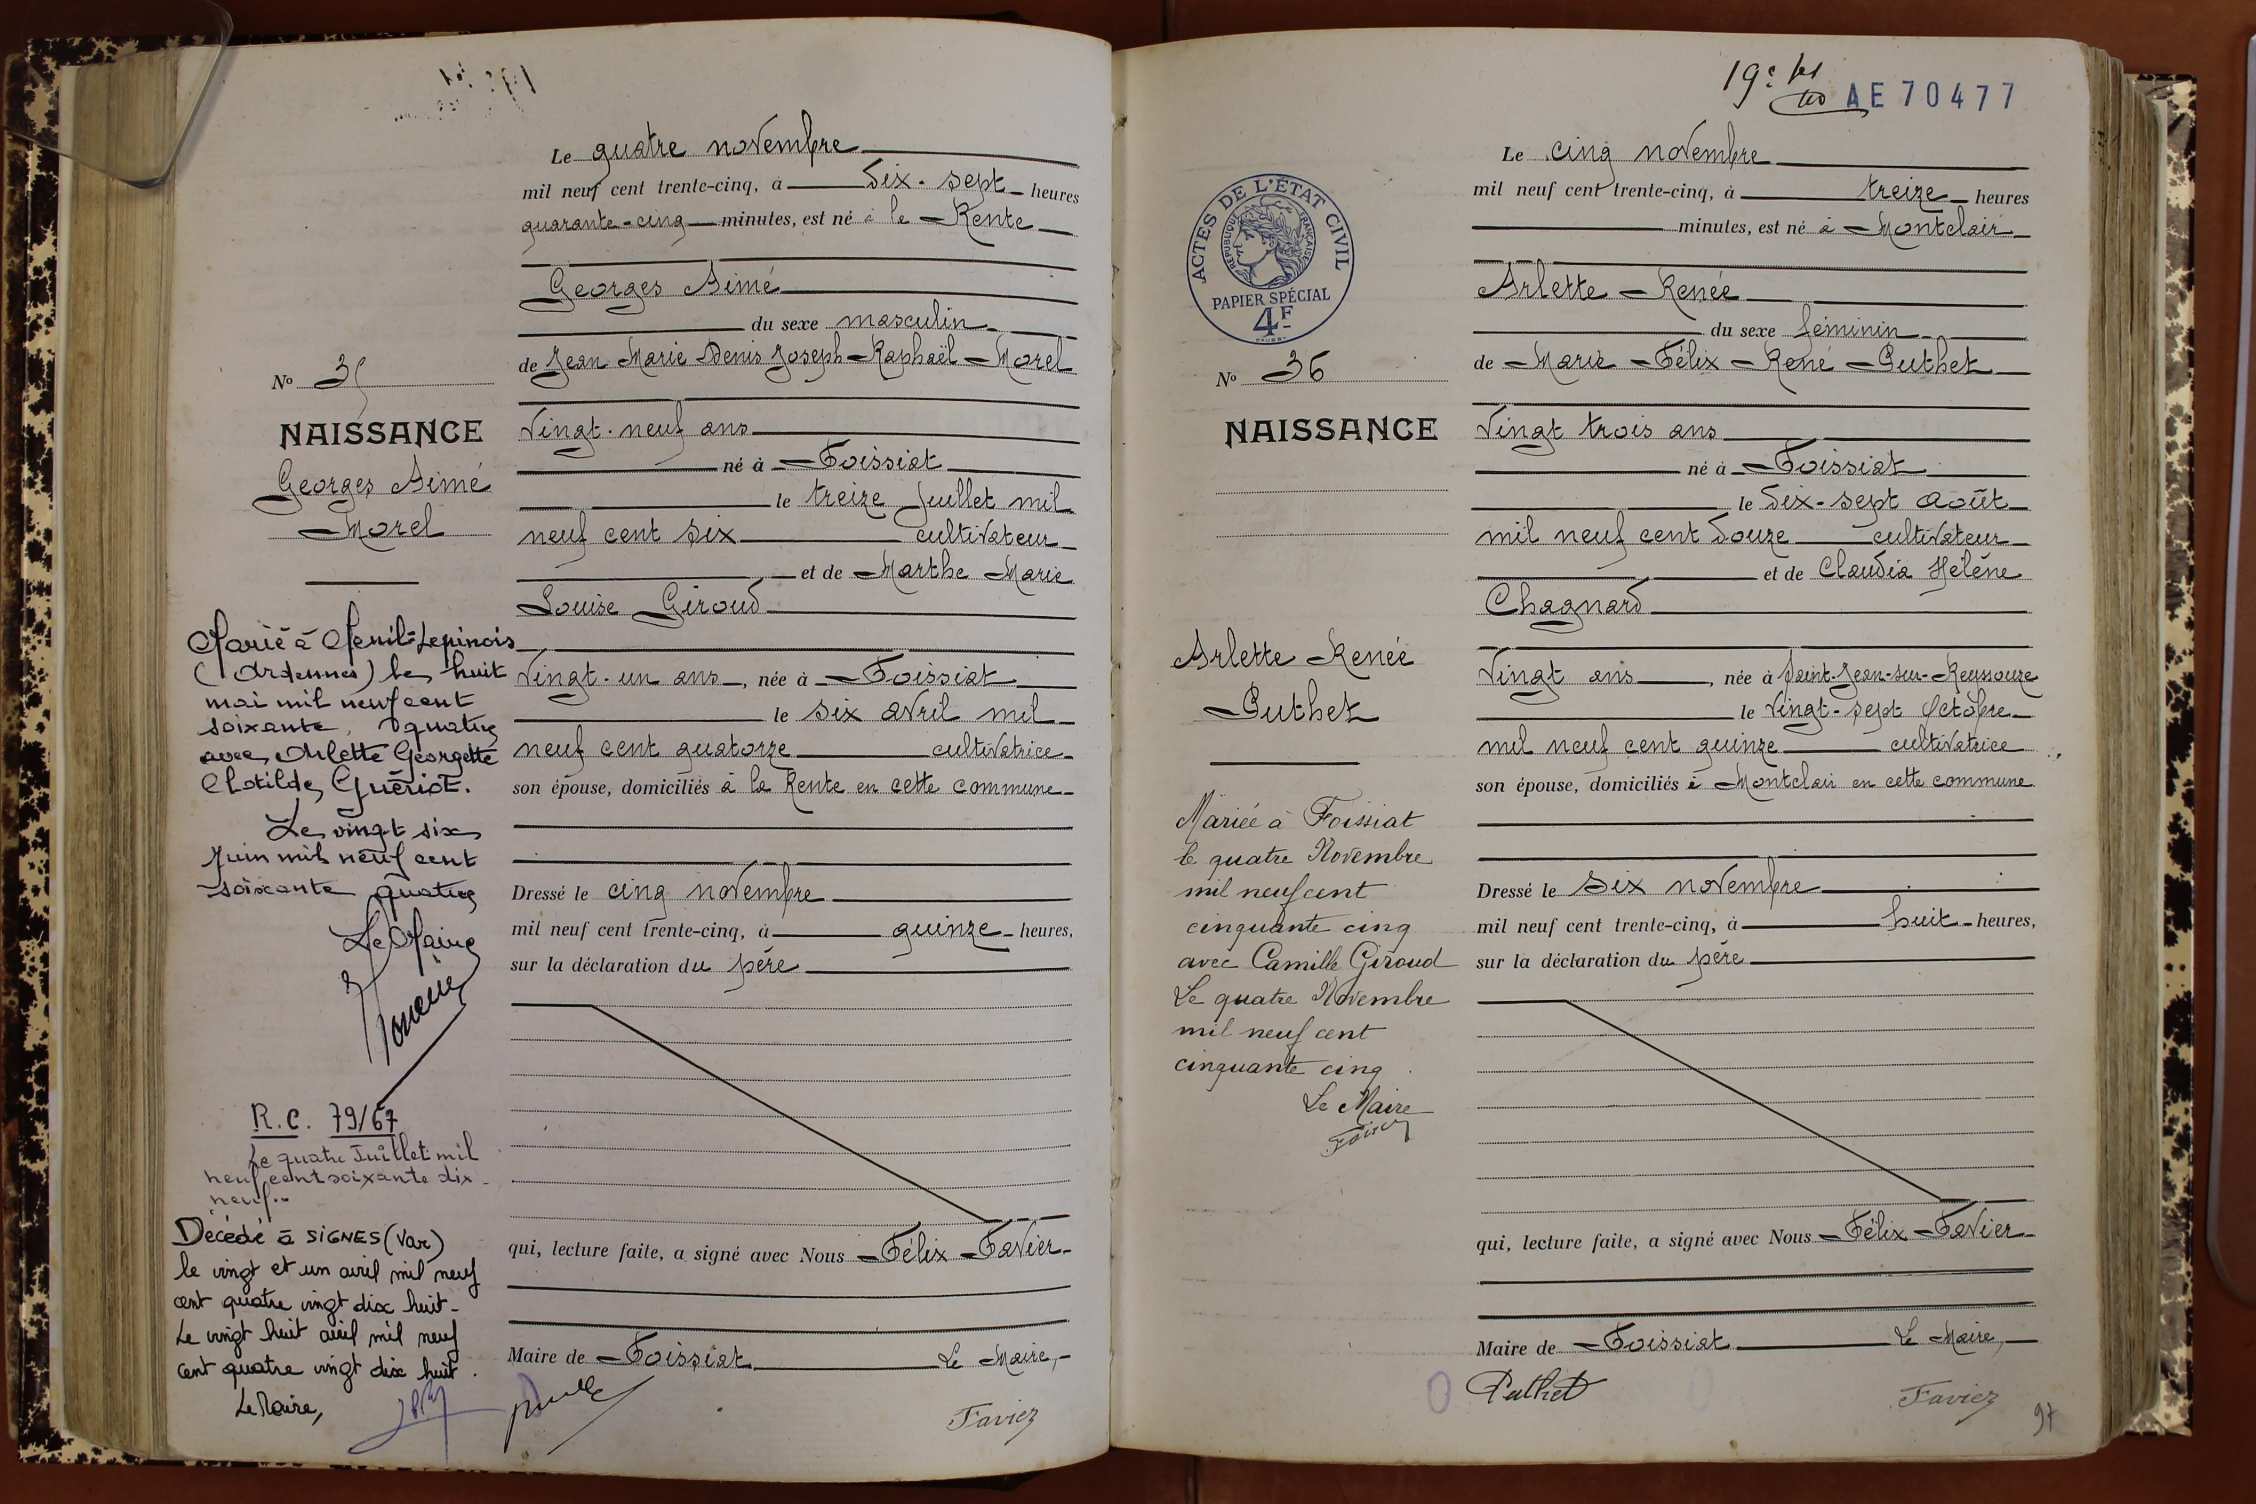 Le quatre novembre
mil neuf cent trente-cinq, à dix-sept heures
quarante-cinq minutes, est né à la Rente
Georges Aimé
du sexe masculin
de Jean Marie Denis Joseph Raphaël Morel
Vingt-neuf ans
né à Foissiat
le treize juillet mil
neuf cent six cultivateur
et de Marthe Marie
Louise Giroud
Vingt-un ans, née à Foissiat
le six avril mil
neuf cent quatorze cultivatrice
son épouse, domiciliés à la Rente en cette commune
Dressé le cinq novembre
mil neuf cent trente-cinq, à quinze heures,
sur la déclaration du père
qui, lecture faite, a signé avec Nous Félix Favier
Maire de Foissiat Le Maire,
Favier
No 35
NAISSANCE
Georges Aimé
Morel
Marié à Menil-Lepinois
(Ardennes) le huit
mai mil neuf cent
soixante quatre
avec Arlette Georgette
Clotilde Guériot.
Le vingt six
Juin mil neuf cent
soixante quatre
Le Maire
R.C. 79/67
Le quatre Juillet mil
neuf cent soixante dix-
neuf..
Décédé à SIGNES (Var)
le vingt et un avril mil neuf
cent quatre vingt dix huit-
Le vingt huit avril mil neuf
cent quatre vingt dix huit.
Le Maire,
19e
AE 70477
Le cinq novembre
mil neuf cent trente-cinq, à treize heures
minutes, est né à Montclair
Arlette Renée
du sexe féminin
de Marie Félix René Puthet
Vingt trois ans
né à Foissiat
le dix-sept août
mil neuf cent douze cultivateur
et de Claudia Hélène
Chagnard
Vingt ans, née à Saint-Jean-sur-Reyssouze
le Vingt-sept Octobre
mil neuf cent quinze cultivatrice
son épouse, domiciliés à Montclair en cette commune
Dressé le six novembre
mil neuf cent trente-cinq, à huit heures,
sur la déclaration du père
qui, lecture faite, a signé avec Nous Félix Favier
Maire de Foissiat Le Maire,
Puthet
Favier
97
ACTES DE L'ÉTAT CIVIL
RÉPUBLIQUE FRANÇAISE
PAPIER SPÉCIAL
4F
No 36
NAISSANCE
Arlette Renée
Puthet
Mariée à Foissiat
le quatre Novembre
mil neuf cent
cinquante cinq
avec Camille Giroud
Le quatre Novembre
mil neuf cent
cinquante cinq
Le Maire